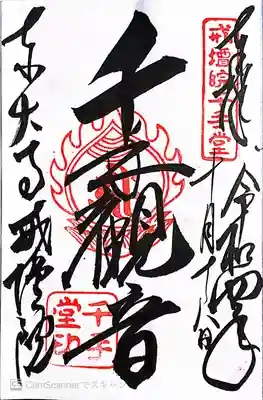 奉拝
戒壇院千手堂
令和四年
十月十八日
千手観音
千手
堂印
東大寺戒壇院
CamScannerでスキャン